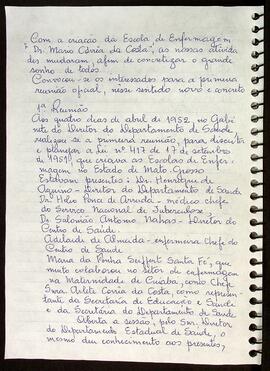 Com a criação da Escola de Enfermagem
"Dr. Mario Corrêa da Costa", as nossas ativida
des mudaram, afim de concretizar o grande
sonho de todos.
Convocou-se os interessados para a primeira
reunião oficial, nesse sentido novo e concreto
1ª Reunião
Aos quatro dias de abril de 1952, no Gabi
nete do Diretor do Departamento de Saúde,
realizou-se a primeira reunião, para discutir
e planejar a Lei nº 417 de 17 de setembro
de 1951, que criava as Escolas de Enfer
magem no Estado de Mato Grosso
Estavam presentes: Dr. Henrique de
Aquino - Diretor do Departamento de Saúde
Dr. Hélio Ponce de Arruda - médico chefe
do Serviço Nacional de Tuberculose.
Dr. Salomão Antonio Nahas - Diretor do
Centro de Saúde.
Adelaide de Almeida - enfermeira chefe do
Centro de Saúde
Maria da Penha Seiffert Santa Fé, que
muito colaborou no setor de enfermagem
na Maternidade de Cuiabá, como Chefe
Snra. Arlete Corrêa da Costa, como represen-
tante da Secretaria de Educação e Saúde
e da Secretária do Departamento de Saúde
Aberta a sessão, pelo Snr. Diretor
do Departamento Estadual de Saúde, o
mesmo deu conhecimento aos presentes,